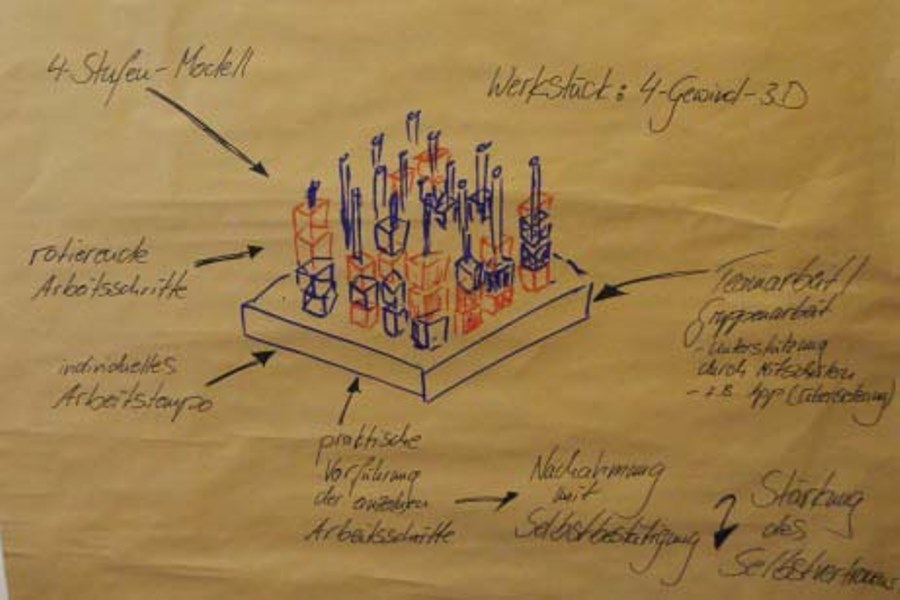 4-Stufen-Modell
Werkstück: 4-Gewind-3D
rotierende
Arbeitsschritte
individuelles
Arbeitstempo
Teamarbeit/
Gruppenarbeit
- Unterstützung
durch Mitschüler
- z.B. App (Übersetzung)
praktische
Vorführung
der einzelnen
Arbeitsschritte
Nachahmung
mit
Selbstbestätigung
Stärkung
des
Selbstvertrauens